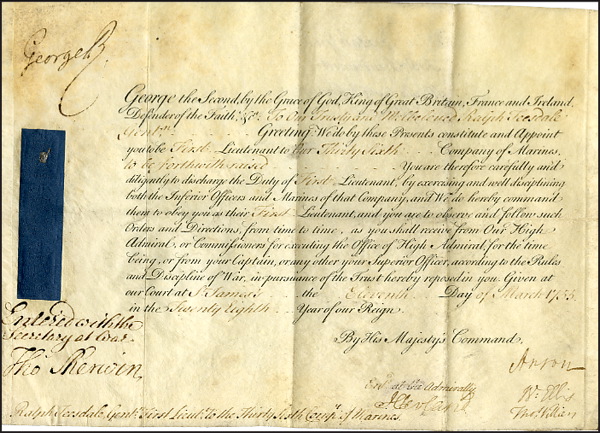 George R.
George the Second, by the Grace of God, King of Great Britain, France and Ireland,
Defender of the Faith, &c. To Our Trusty and Welbeloved Ralph Teesdale
Gentn. Greeting We do by these Presents constitute and Appoint
you to be First Lieutenant to Our Thirty Sixth Company of Marines,
to be forthwith raised You are therefore carefully and
diligently to discharge the Duty of First Lieutenant, by exercising and well disciplining
both the Inferior Officers and Marines of that Company, and We do hereby command
them to obey you as their First Lieutenant, and you are to observe and follow such
Orders and Directions, from time to time, as you shall receive from Our High
Admiral, or Commissioners for executing the Office of High Admiral, for the time
being, or from your Captain, or any other your Superior Officer, according to the Rules
and Discipline of War, in pursuance of the Trust hereby reposed in you. Given at
our Court at St. James's the Eleventh Day of March 1755.
in the Twenty Eighth Year of our Reign.
Entered with the
Secretary at War
Tho Sherwin.
By His Majesty's Command,
Anson
Wm. Ellis
Tho. Villiers
Entd. at the Admiralty
J Clevland
Ralph Teesdale, Gentn. First Lieutt. to the Thirty Sixth Compy. of Marines.